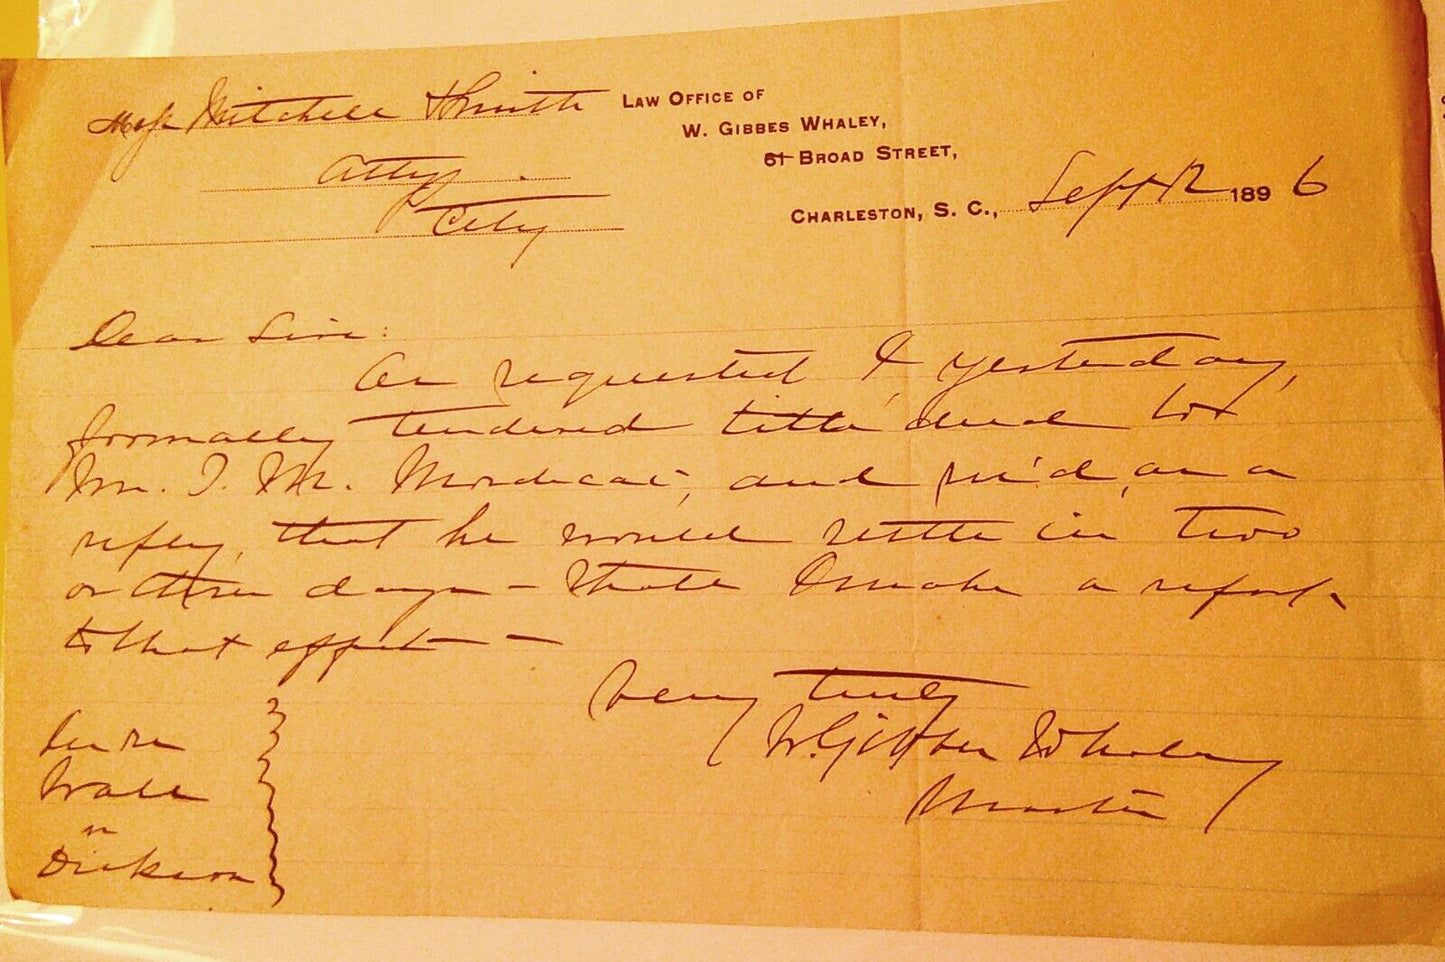 Mess Mitchell & Smith
Attys.
City
LAW OFFICE OF
W. GIBBES WHALEY,
61 BROAD STREET,
CHARLESTON, S. C., Sept 12 1896
Dear Sirs:
As requested, I, yesterday,
formally tendered title deed to
Mr. T. M. Mordecai, and rec'd, as a
reply, that he would settle in two
or three days – Shall I make a report
to that effect –
Very truly
W. Gibbes Whaley
Master
In re
Wall
vs
Dickson